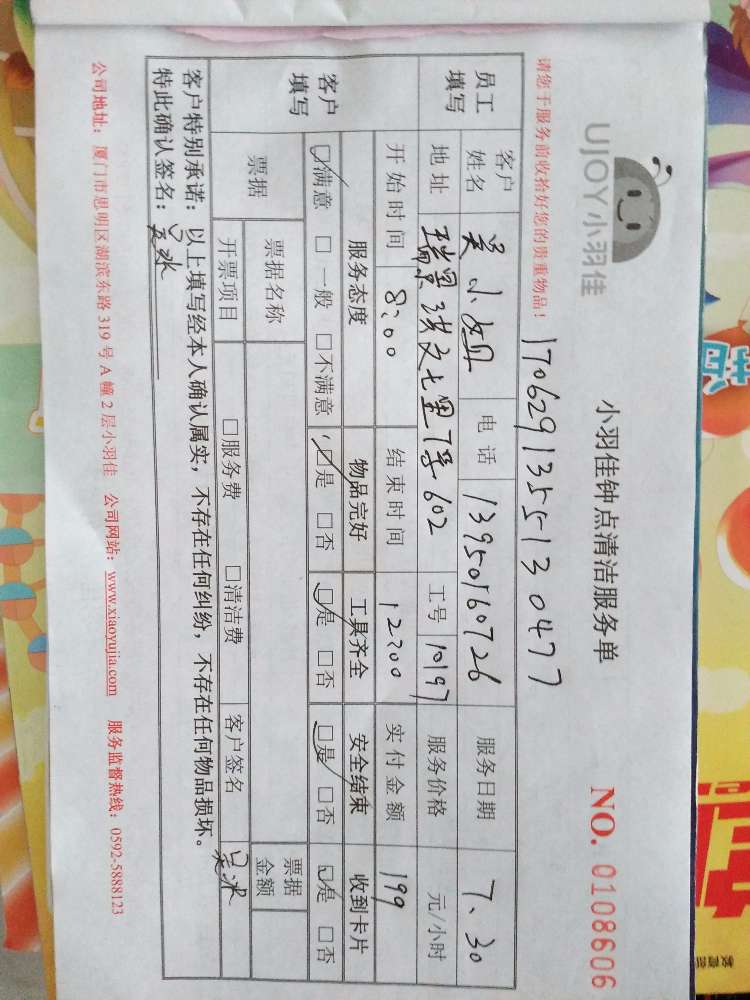 UJOY小羽佳
小羽佳钟点清洁服务单
NO. 0108606
请您于服务前收拾好您的贵重物品！
1706291355130477
员工填写 客户姓名 吴小姐 电话 13950160726 服务日期 7、30
地址 瑞景 七里 602 工号 10197 服务价格 元/小时
开始时间 8:00 结束时间 12:00 实付金额 199
客户填写 服务态度 物品完好 工具齐全 安全结束 收到卡片
☑满意 □一般 □不满意 ☑是 □否 ☑是 □否 ☑是 □否 ☑是 □否
票据 票据名称 票据金额
开票项目 □服务费 □清洁费 客户签名 吴冰
客户特别承诺：以上填写经本人确认属实，不存在任何纠纷，不存在任何物品损坏。
特此确认签名：吴冰
公司地址：厦门市思明区湖滨东路 319 号 A 幢 2 层小羽佳 公司网站：www.xiaoyujia.com 服务监督热线：0592-5888123